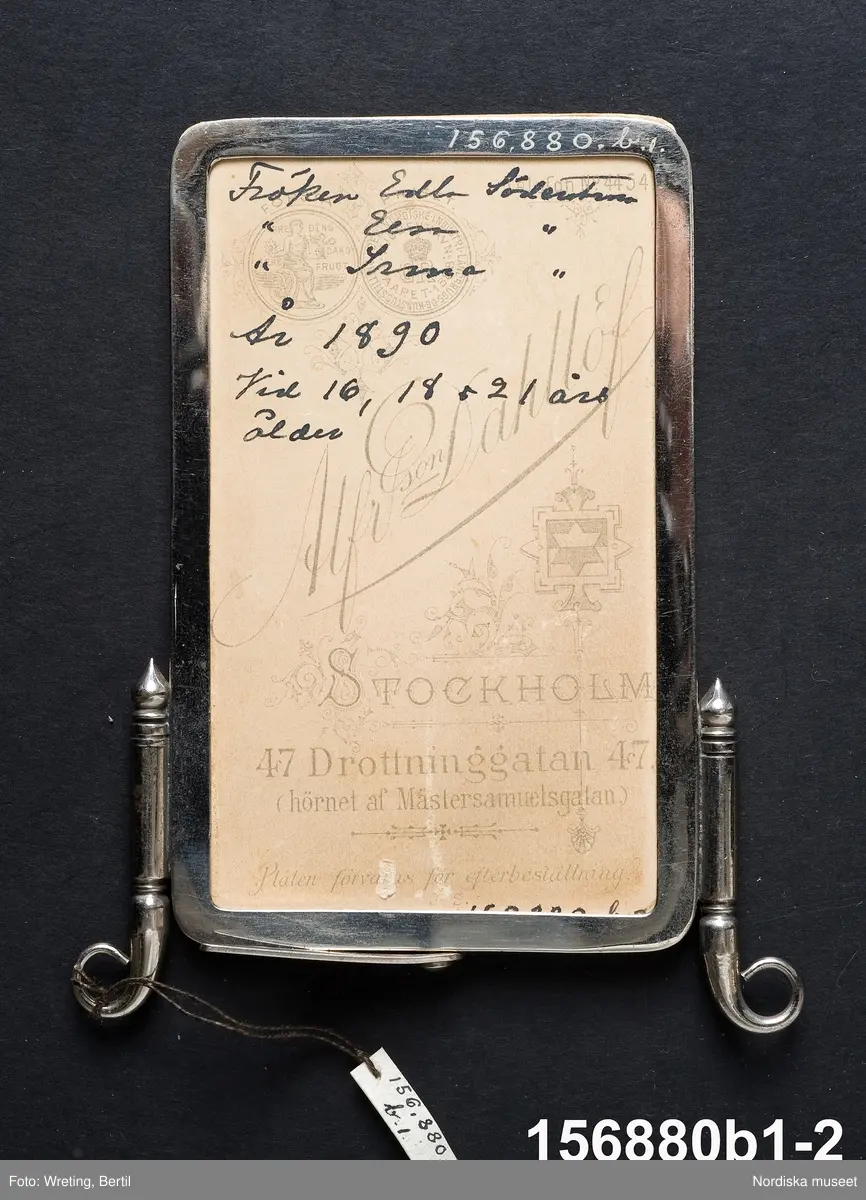 156,880. b.1.
Fröken Edla Söderström
" Elin "
" Irma "
År 1890
Vid 16, 18 & 21 års
ålder
Alfr. son Dahllöf
STOCKHOLM
47 Drottninggatan 47.
(hörnet af Mästersamuelsgatan)
Platen förvaras för efterbeställning.
156,880
b.1.
156880b1-2
Foto: Wreting, Bertil
Nordiska museet